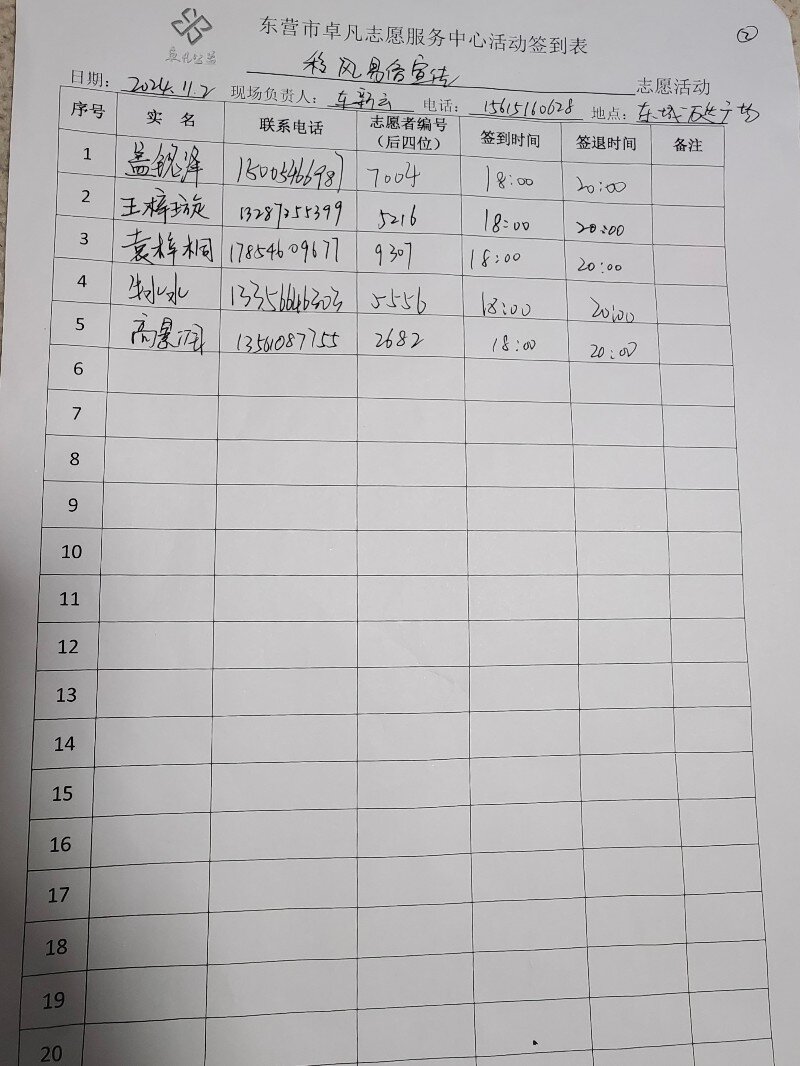 卓凡公益
东营市卓凡志愿服务中心活动签到表
②
移风易俗宣传 志愿活动
日期：2024.11.2 现场负责人：车新云 电话：15615160628 地点：东城 广场
序号 实 名 联系电话 志愿者编号（后四位） 签到时间 签退时间 备注
1 盖锐泽 15005466987 7004 18:00 20:00
2 王梓璇 13287255399 5216 18:00 20:00
3 袁梓桐 17854609677 9307 18:00 20:00
4 13356646303 5556 18:00 20:00
5 高景 13561087755 2682 18:00 20:00
6
7
8
9
10
11
12
13
14
15
16
17
18
19
20